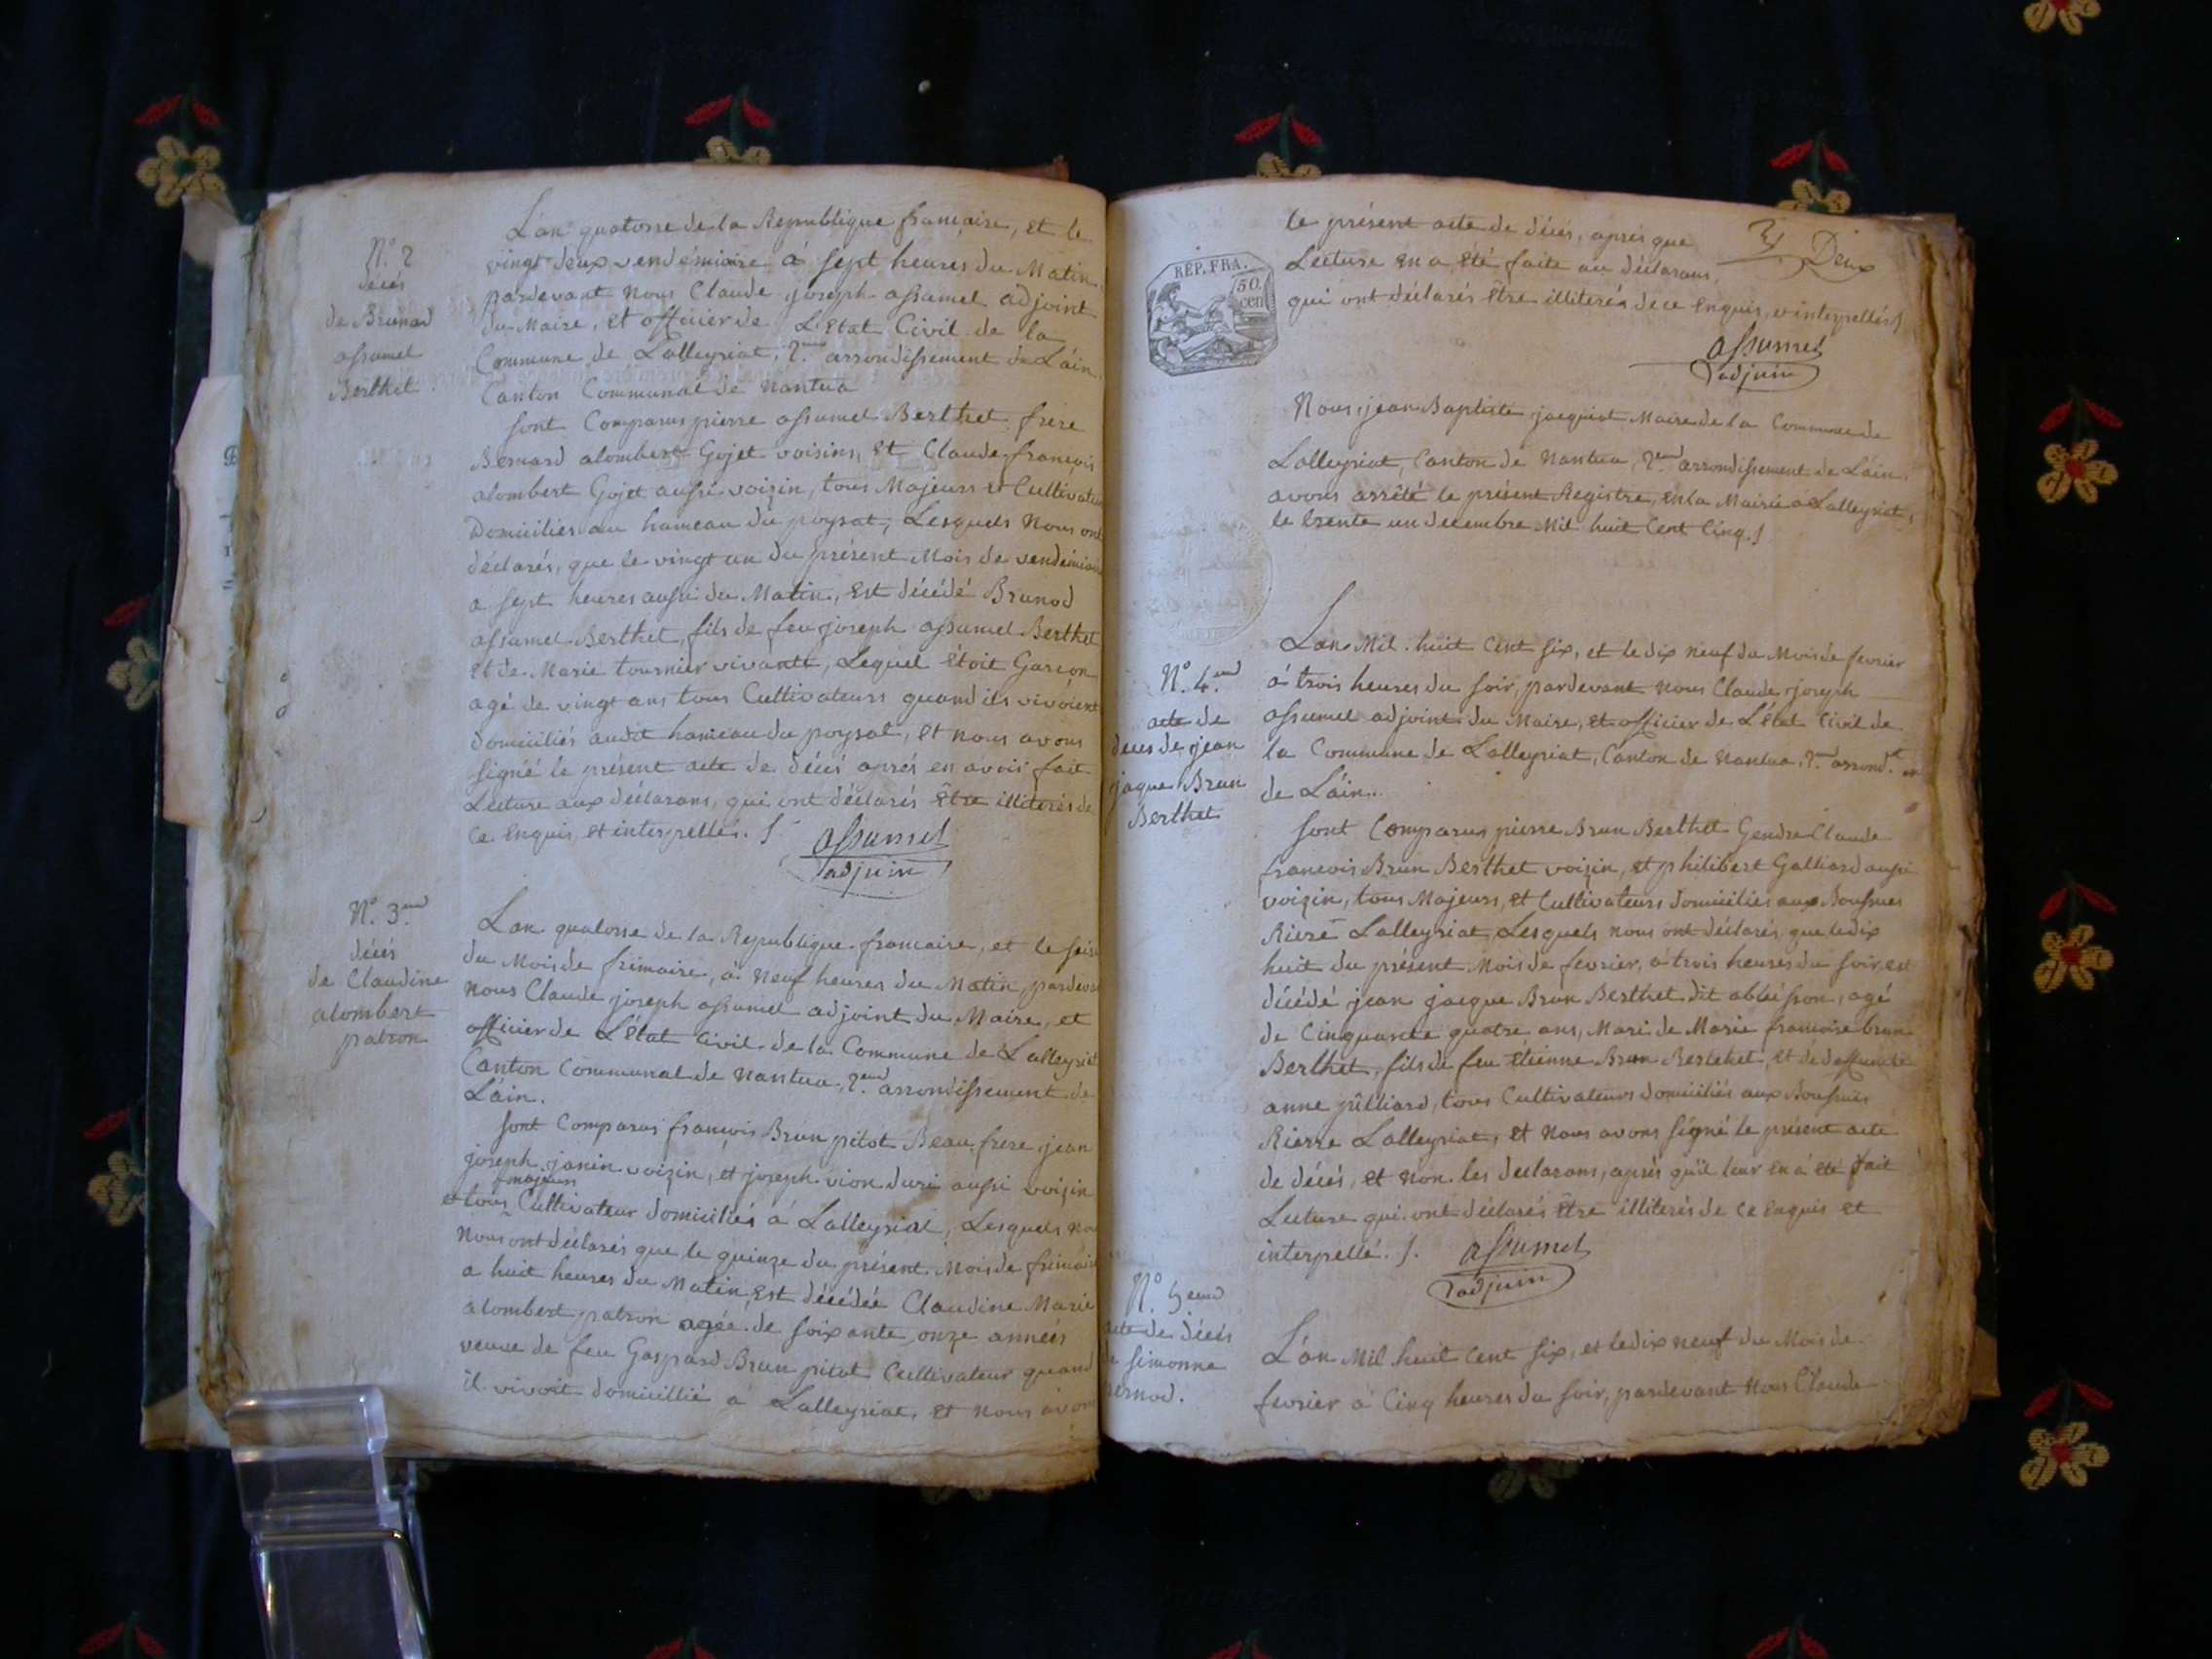 N.o 2
décés
de Brunod
assumel
Berthet
L'an quatorse de la Republique francaise, et le
vingt deux vendémiaire á sept heures du Matin
pardevant Nous Claude joseph assumel adjoint
du Maire, et officier de L'Etat Civil de la
Commune de Lalleyriat, 2.eme arrondissement de L'áin.
Canton Communal de Nantua
sont Comparus pierre assumel Berthet frere
Bernard alombert Gojet voisins, Et Claude francois
alombert Gojet aussi voizin, tous Majeurs et Cultivateu
Domiciliés au hameau du poysat, Lesquels Nous ont
déclarés, que le vingt un du présent Mois de vendémiai
a sept heures aussi du Matin, est décédé Brunod
assumel Berthet, fils de feu joseph assumel Berthet
et de Marie tournier vivante, Lequel étoit Garcon
agé de vingt ans tous Cultivateurs quand ils vivóient
domiciliés audit hameau du poysat, et nous avons
signé le présent acte de décés aprés en avoir fait
Lecture aux déclarans, qui ont déclarés Être illiterés de
Ce Enquis, et interpellés. /
assumel
adjoin
N.o 3.eme
décés
de Claudine
alombert
patron
L'an quatorse de la Republique francaise, et le seis
du Mois de frimaire, a Neuf heures du Matin, pardeva
Nous Claude joseph assumel adjoint du Maire, et
officier de L'Etat Civil de la Commune de Lalleyriat
Canton Communal de Nantua, 2.eme arrondissement de
L'áin.
sont Comparus francois Brun pitot Beau frere, jean
joseph janin voizin, et joseph vion duri aussi voizin
majeurs
et tous Cultivateur domiciliés á Lalleyriat, Lesquels no
Nous ont déclarés que le quinze du présent Mois de frimair
a huit heures du Matin, Est décédée Claudine Marie
alombert patron agée de soixante onze années
veuve de feu Gaspard Brun pitot Cultivateur quand
il vivoit domicillié á Lalleyriat, et nous avon
Deux
RÉP. FRA.
50.
cen
le présent acte de décés, aprés que
Lecture en a été faite au déclarans,
qui ont déclarés Être illiterés de ce Enquis, et interpellés /
assumel
adjoin
Nous, jean Baptiste jacquiot Maire de la Commune de
Lalleyriat, Canton de Nantua, 2.eme arrondissement de L'áin.
avons arrêté le présent Registre, en la Mairie a Lalleyriat,
le trente un decembre Mil huit Cent Cinq. /
N.o 4.eme
acte de
deces de jean
jaque Brun
Berthet
L'an Mil huit Cent six, et le dix neuf du Mois de fevrier
á trois heures du soir, pardevant Nous Claude joseph
assumel adjoint du Maire, et officier de L'État Civil de
la Commune de Lalleyriat, Canton de Nantua, 2.eme arrond.t
de L'áin.
sont Comparus pierre Brun Berthet Gendre Claude
francois Brun Berthet voizin, et philibert Galliard aussi
voizin, tous Majeurs, et Cultivateurs domiciliés aux
Lalleyriat, Lesquels nous ont déclarés que le dix
huit du présent Mois de fevrier, á trois heures du soir, est
décédé jean jacque Brun Berthet dit, agé
de Cinquante quatre ans, Mari de Marie francoise brun
Berthet, fils de feu Etienne Brun Berthet, et de deffuncte
anne, tous Cultivateurs domiciliés aux
Lalleyriat, et Nous avons signé le présent acte
de décés, et Non les declarans, aprés qu'il leur en á été fait
Lecture qui ont déclarés Être illiterés de Ce Enquis et
interpellé. /.
assumel
adjoin
N.o 5.eme
acte de décés
simonne
L'án Mil huit Cent six, et le dix neuf du Mois de
fevrier á Cinq heures du soir, pardevant Nous Claude